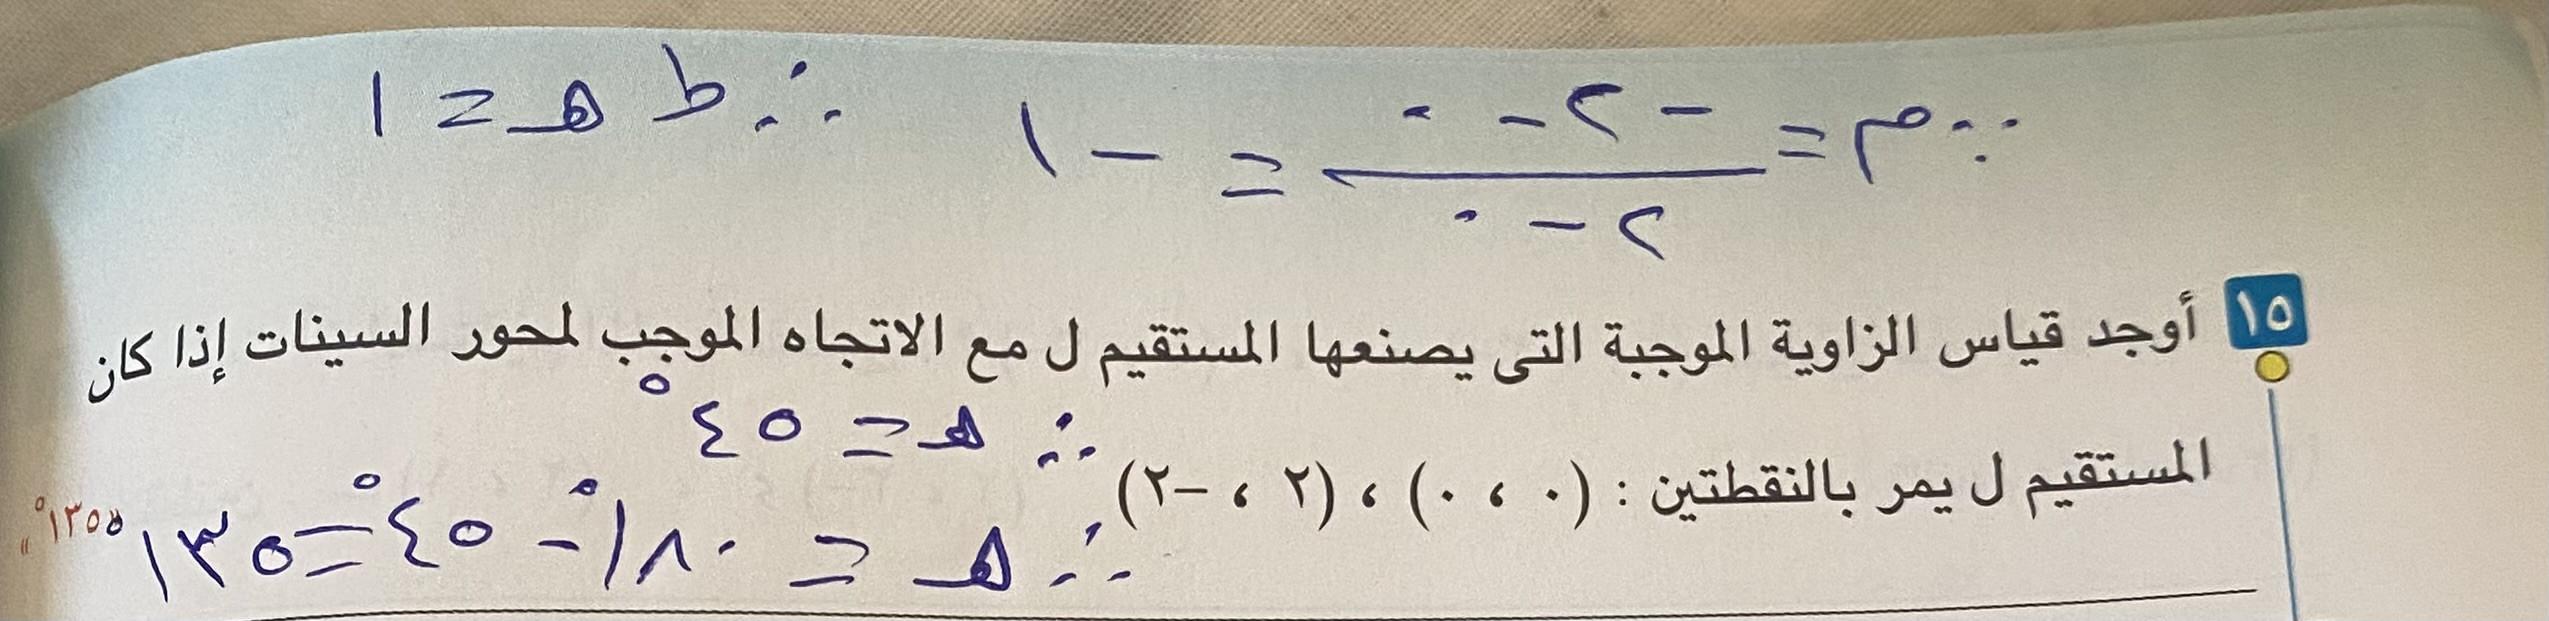 ∵ م = -٢ - ٠ / ٢ - ٠ = -١ ∴ ط هـ = ١
١٥ أوجد قياس الزاوية الموجبة التى يصنعها المستقيم ل مع الاتجاه الموجب لمحور السينات إذا كان
∴ هـ = ٤٥°
المستقيم ل يمر بالنقطتين : (٠ ، ٠) ، (٢ ، -٢)
∴ هـ = ١٨٠° - ٤٥° = ١٣٥
«١٣٥°»